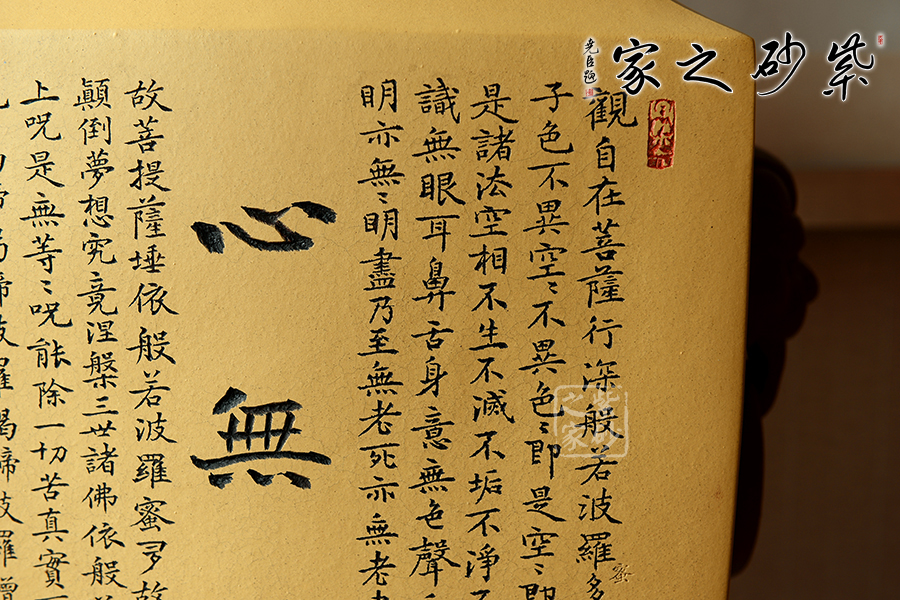 紫砂之家
堯臣題
觀自在菩薩行深般若波羅蜜多
子色不異空〻不異色〻即是空〻即
是諸法空相不生不滅不垢不淨不
識無眼耳鼻舌身意無色聲
明亦無〻明盡乃至無老死亦無老
心無
故菩提薩埵依般若波羅蜜多故
顛倒夢想究竟涅槃三世諸佛依般
上呪是無等〻呪能除一切苦真實
諦波羅揭諦波羅僧
紫砂之家